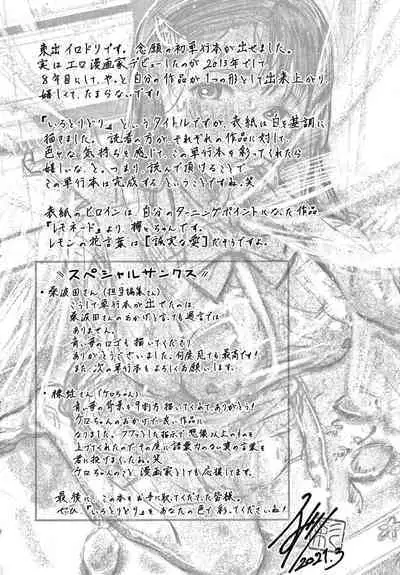 東出イロドリです。念願の初単行本が出せました。
実はエロ漫画家デビューしたのが2013年でして
8年目にして、やっと自分の作品が1つの形として出来上がり
嬉しくて、たまらないです！
『いろとりどり』というタイトルですが、表紙は白を基調に
描きました。読者の方が、それぞれの作品に対して
色々な気持ちを感じて、この単行本を彩ってくれたら
嬉しいな、と。つまり、読んで頂けることで
この単行本は完成する ということですね。笑
表紙のヒロインは、自分のターニングポイントとなった作品
『レモネード』より、檸ちゃんです。
レモンの花言葉は【誠実な愛】だそうですよ。
≪スペシャルサンクス≫
・桑波田さん(担当編集さん)
こうして単行本が出せたのは
桑波田さんのおかげと言っても過言では
ありません。
青い華のロゴも描いてくださり
ありがとうございました。何度見ても最高です！
また、次の単行本もよろしくお願いします。
さん(ケロちゃん)
青い華の背景を手伝って描いてくれて、ありがとう！
ケロちゃんのおかげで良い作品に
なりました。フワッとした指示で想像以上のものを
上げてくれたのでその度に語彙力のない賞の言葉を
君に投げまくったね。笑
ケロちゃんのこと、漫画家としても応援してます。
最後に、この本をお手に取ってくださった皆様。
ぜひ『いろとりどり』をあなたの色で彩ってくださいね！
2021.3